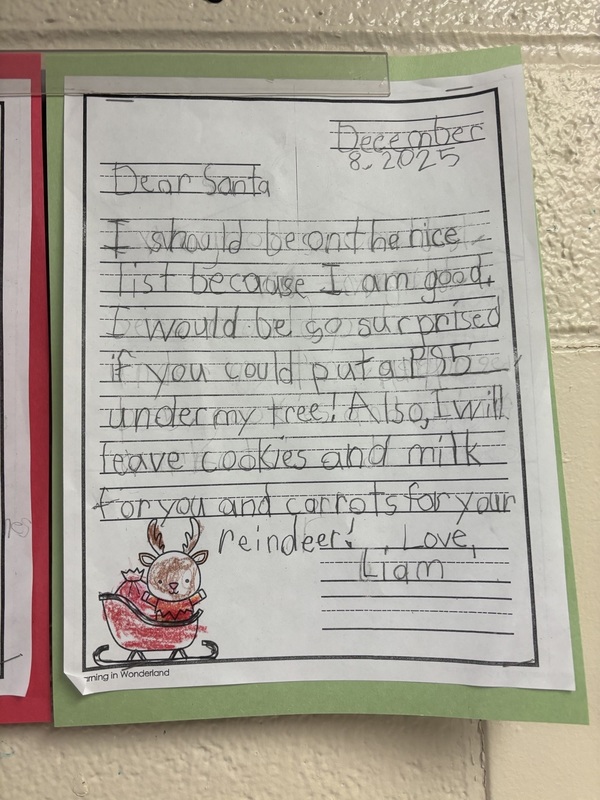 December
8, 2025
Dear Santa
I should be on the nice
list because I am good.
I would be so surprised
if you could put a PS5
under my tree! Also, I will
leave cookies and milk
for you and carrots for your
reindeer! Love,
Liam
rning in Wonderland